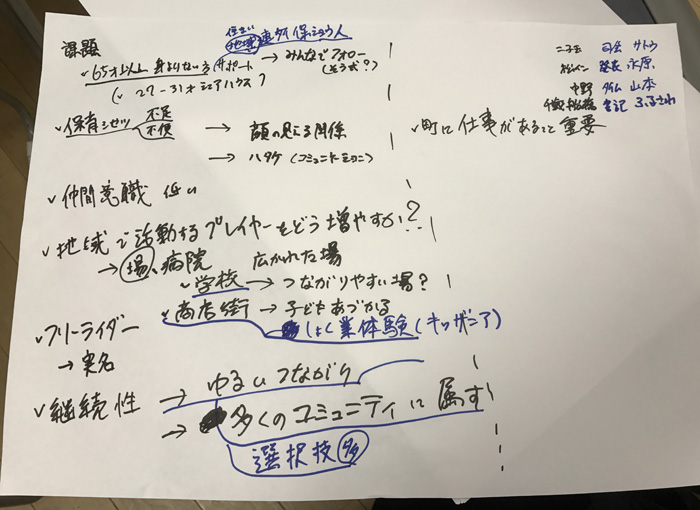 課題
住まい
地域 連帯保ショウ人
✓65才以上 身よりない方 サポート → みんなでフォロー
(そう式?)
(✓ 27-31才 シェアハウス)
✓保育シセツ 不足 → 顔の見える関係
不便
→ ハタケ (コミュニティ
✓仲間意識 低い
✓地域で活動するプレイヤーをどう増やすか?
→ 場、病院 広がれた場
✓学校 → つながりやすい場?
✓商店街 → 子どもあづかる
しょく業体験 (キッザニア)
✓フリーライダー
→ 実名
✓継続性 → ゆるいつながり
→ 多くのコミュニティに属す
選択技 多
司会 サトウ
発表 永原
中野 タイム 山本
書記 ふるさわ
✓町に仕事があること 重要